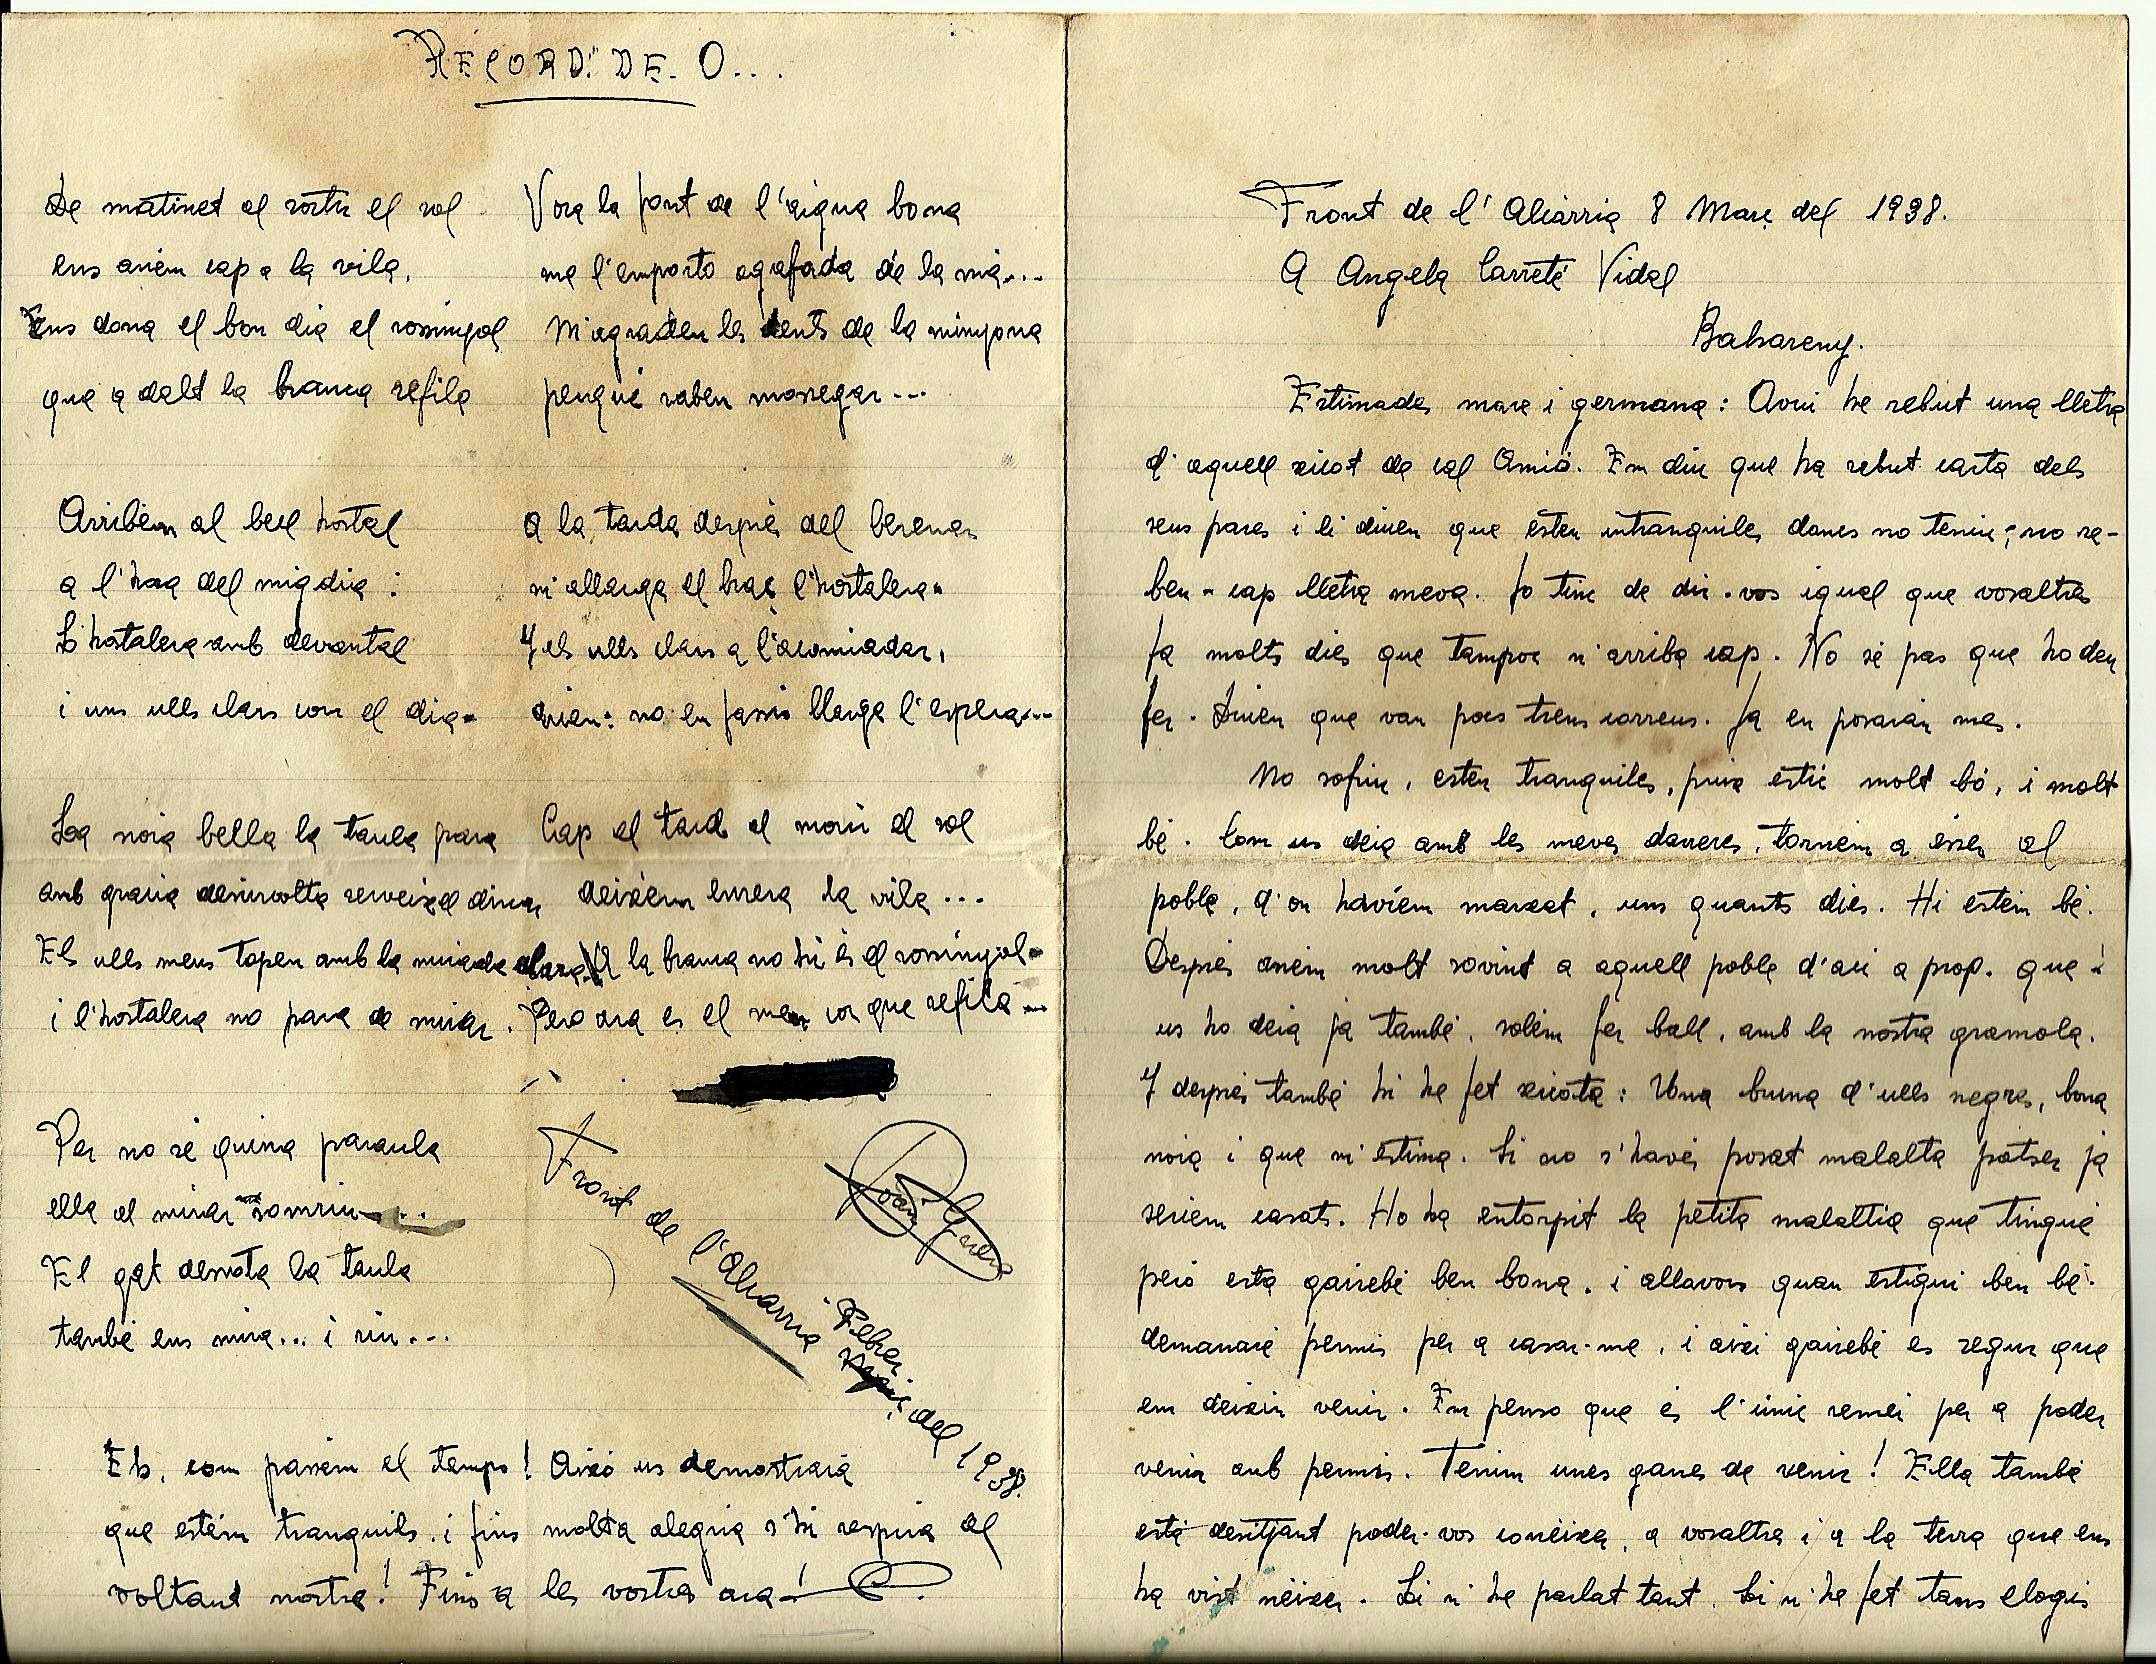 RECORD: DE. O...
De matinet al sortir el sol
ens anèm cap a la vila,
Ens dona el bon dia el rossinyol
que a dalt la branca refila
Arribèm al bell hostal
a l'hora del migdia :
L'hostalera amb devantal
i uns ulls clars com el dia.
La noia bella la taula para
amb gracia desinvolta serveix el dinar
Els ulls meus topen amb la mirada clara
i l'hostalera no para de mirar.
Per no sé quina paraula
ella al mirar-me somriu...
El gat dessota la taula
també ens mira... i riu...
Vora la font de l'aigua bona
me l'emporto agafada de la mà....
M'agraden les dents de la minyona
perquè saben mossegar...
A la tarda desprès del berenar
m'allarga el braç l'hostalera.
Y els ulls clars a l'acomiadar,
diuen: no en fassis llarga l'espera...
Cap al tard al morir el sol
deixèm enrera la vila...
A la branca no hi és el rossinyol.
Pero ara es el meu cor que refila...
Joan
Front de l'Alcarria Febrer
del 1938.
Eh, com passèm el temps! Això us demostrarà
que estèm tranquils, i fins molta alegria s'hi respira al
voltant nostre! Fins a les vostres ara!
Front de l'Alcàrria 8 Març del 1938.
A Angela Carreté Vidal
Babareny.
Estimades mare i germana: Avui he rebut una lletra
d'aquell xicot de cal Amió. Em diu que ha rebut carta dels
seus pares i li diuen que esteu intranquiles doncs no teniu, no re-
beu - cap lletra meva. Jo tinc de dir-vos igual que vosaltres
fa molts dies que tampoc n'arriba cap. No sé pas que ho deu
fer. Diuen que van pocs trens correus. Ja en posaràn mes.
No sofriu, esteu tranquiles, puix estic molt bó, i molt
bé. Com us deia amb les meves darreres, tornèm a ésser al
poble, d'on havíem marxat, uns quants dies. Hi estèm bé.
Desprès anèm molt sovint a aquell poble d'aci a prop. que
us ho deia ja també, solèm fer ball, amb la nostra gramola.
Y desprès també hi he fet xicota: Una bruna d'ulls negres, bona
noia i que m'estima. Si no s'havés posat malalta potser ja
seriem casats. Ho ha entorpit la petita malaltia que tingué
peró està gairebé ben bona. i allavors quan estigui ben bé.
demanaré permis per a casar-me, i aixi gairebé es segur que
em deixin venir. Em penso que és l'únic remei per a poder
venir amb permis. Tenim unes ganes de venir! Ella també
està desitjant poder-vos conèixe, a vosaltres i a la terra que ens
ha vist nèixer. Li n'he parlat tant. Li n'he fet tans elogis